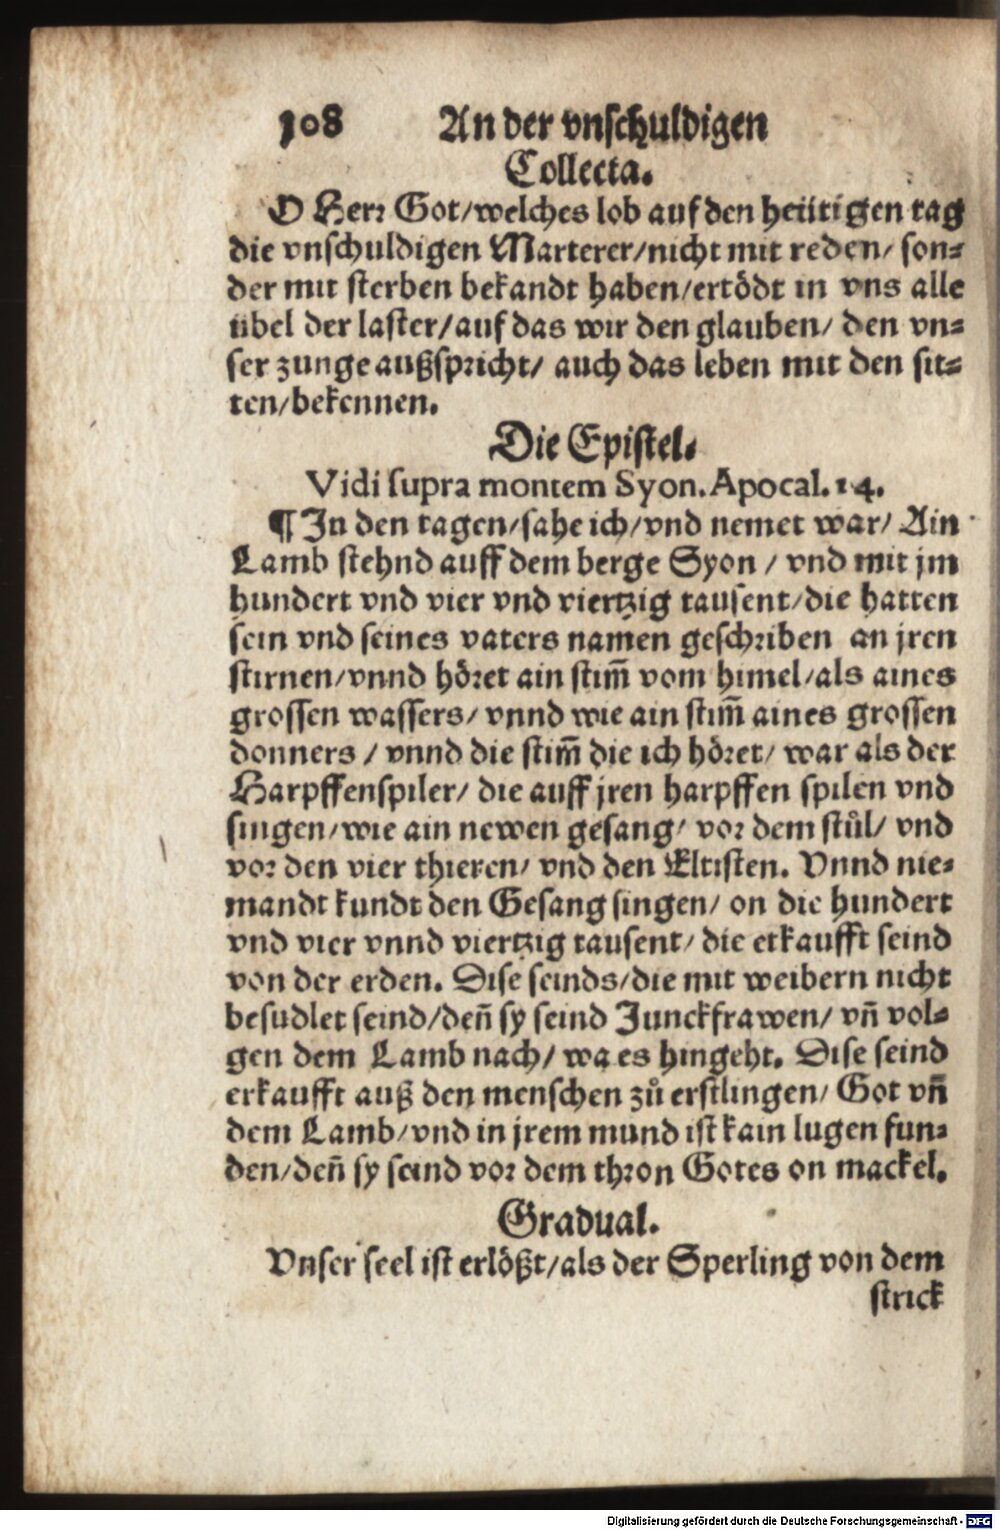 108 An der vnschuldigen
Collecta.
O Herr Got/welches lob auf den heütigen tag
die vnschuldigen Marterer/nicht mit reden/ son⸗
der mit sterben bekandt haben/ertödt in vns alle
übel der laster/auf das wir den glauben/ den vn⸗
ser zunge außspricht/ auch das leben mit den sit⸗
ten/bekennen.
Die Epistel.
Vidi supra montem Syon. Apocal. 14.
¶ In den tagen/sahe ich/vnd nemet war/ Ain
Lamb stehnd auff dem berge Syon / vnd mit jm
hundert vnd vier vnd viertzig tausent/die hatten
sein vnd seines vaters namen geschriben an jren
stirnen/vnnd höret ain stim̄ vom himel/als aines
grossen wassers/ vnnd wie ain stim̄ aines grossen
donners / vnnd die stim̄ die ich höret/ war als der
Harpffenspiler/ die auff jren harpffen spilen vnd
singen/wie ain newen gesang/ vor dem stůl/ vnd
vor den vier thieren/ vnd den Eltisten. Vnnd nie⸗
mandt kundt den Gesang singen/ on die hundert
vnd vier vnnd viertzig tausent/ die erkaufft seind
von der erden. Dise seinds/die mit weibern nicht
besudlet seind/den̄ sy seind Junckfrawen/ vn̄ vol⸗
gen dem Lamb nach/ wa es hingeht. Dise seind
erkaufft auß den menschen zů erstlingen/ Got vn̄
dem Lamb/vnd in jrem mund ist kain lugen fun⸗
den/den̄ sy seind vor dem thron Gotes on mackel.
Gradual.
Vnser seel ist erlößt/als der Sperling von dem
strick
Digitalisierung gefördert durch die Deutsche Forschungsgemeinschaft - DFG